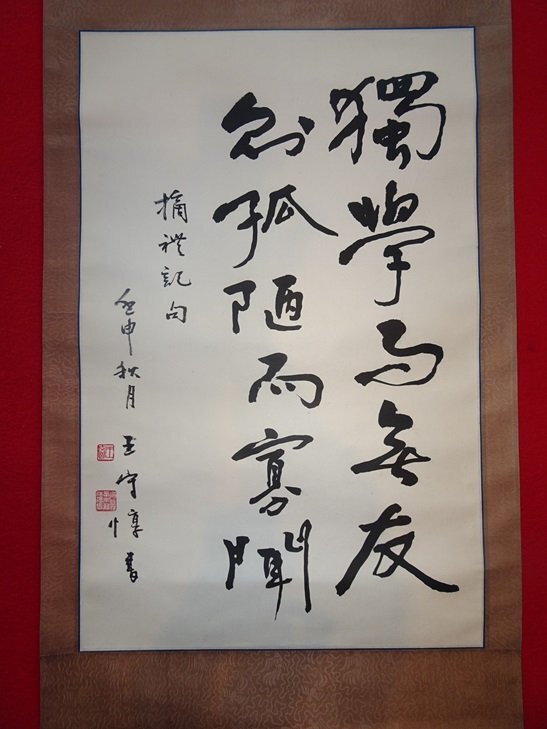 獨學而無友
則孤陋而寡聞
摘禮記句
壬申秋月 王守
書